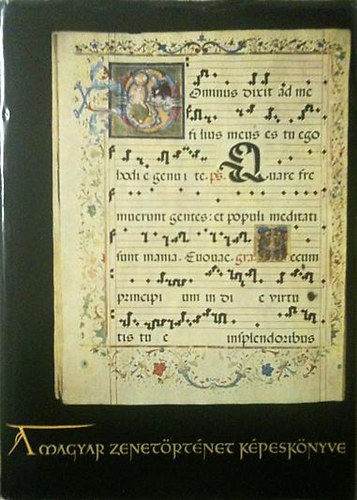 Dominus dixit ad me
fi lius meus es tu ego
hodi e genu i te. ps. Quare fre
muerunt gentes: et populi meditati
sunt inania. Euouae. gra Tecum
principi um in di e virtu
tis tu e insplendoribus
A MAGYAR ZENETÖRTÉNET KÉPESKÖNYVE